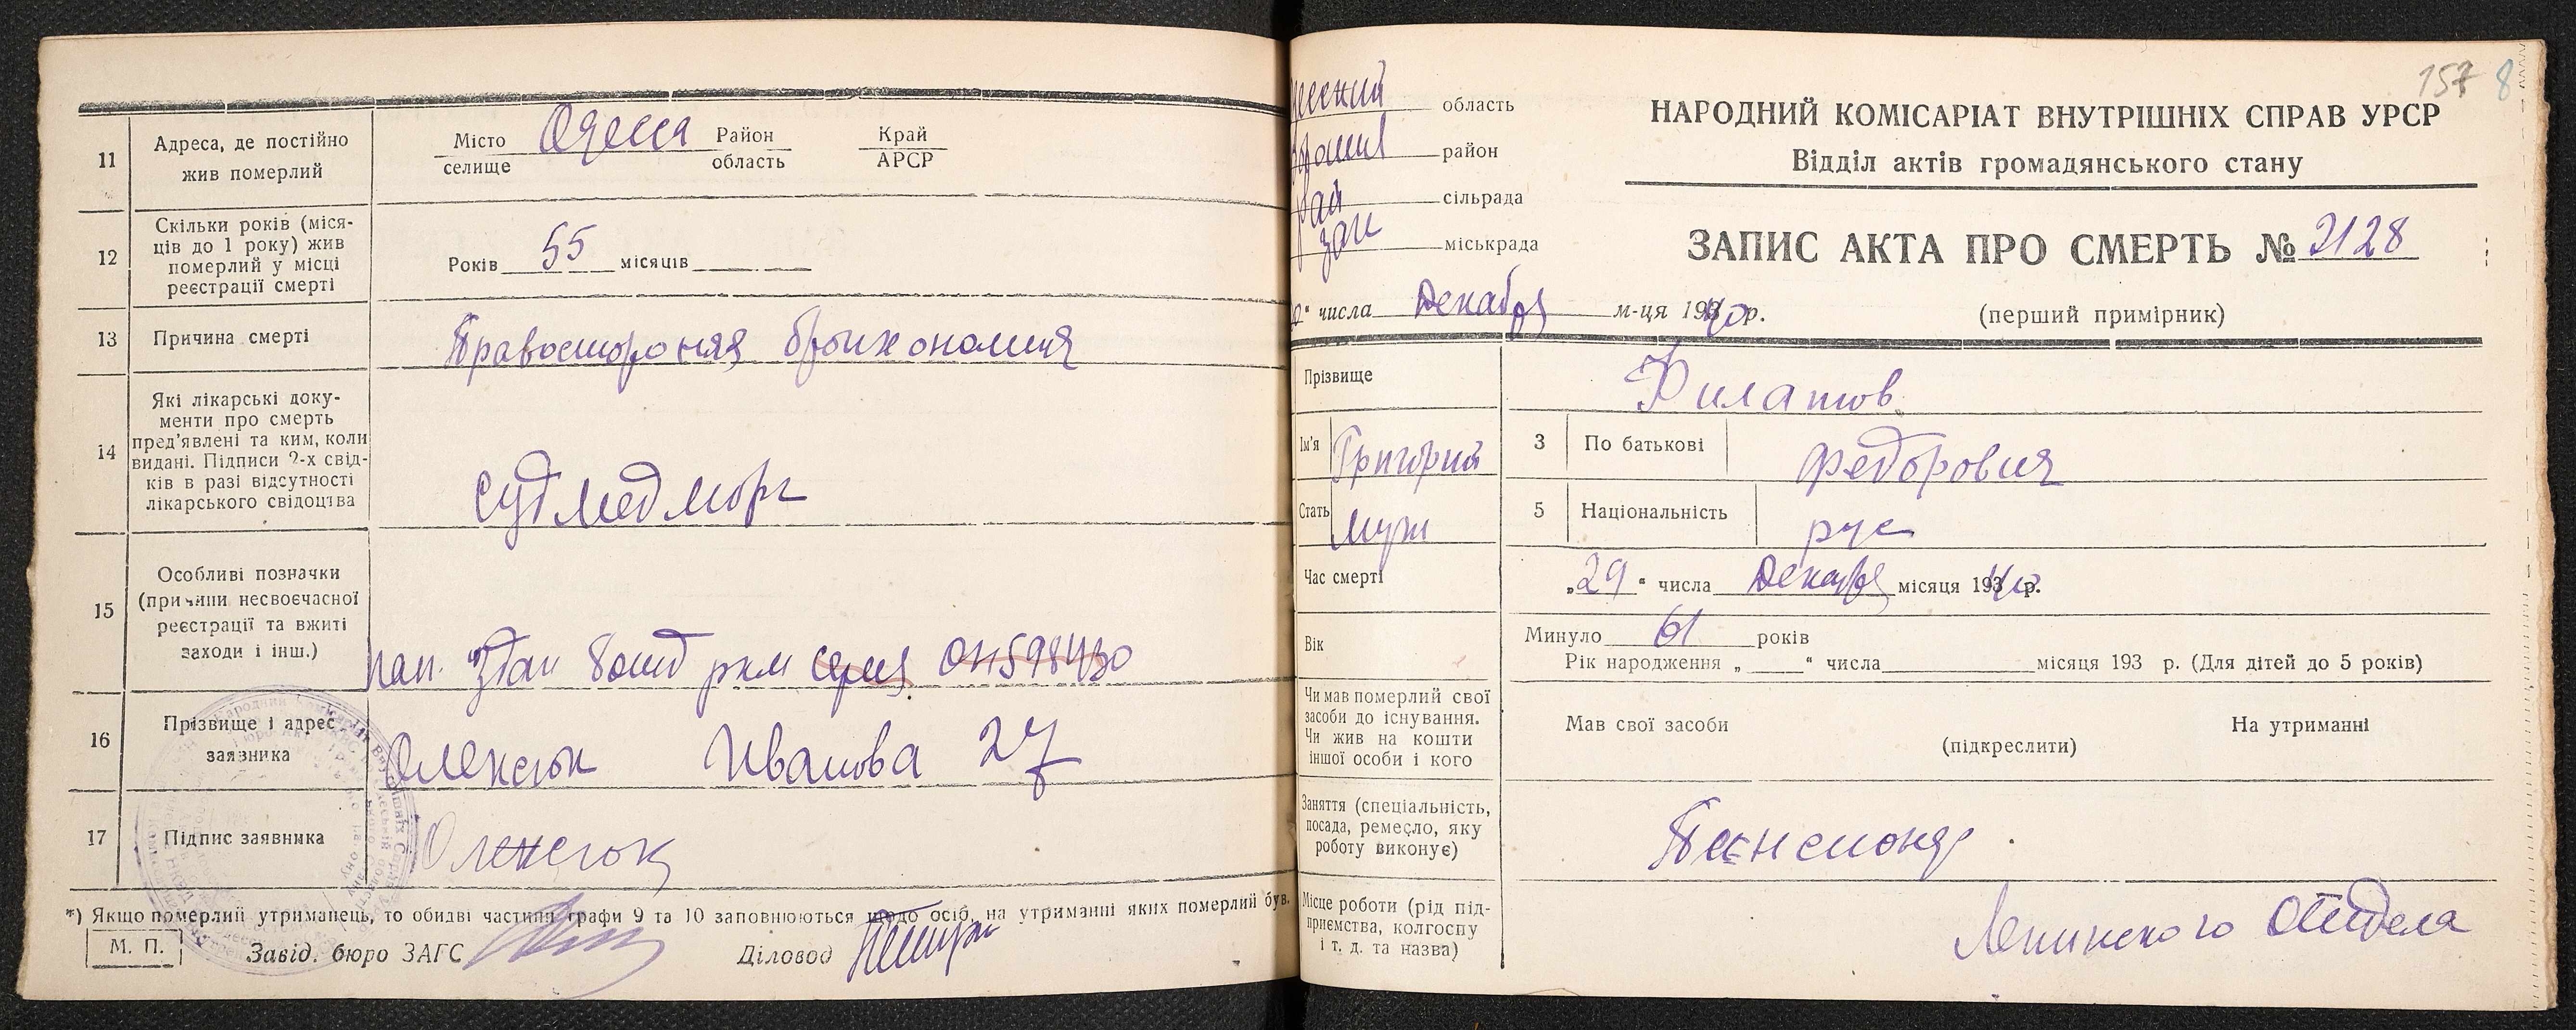 11
Адреса, де постійно
жив померлий
Місто Одесса Район Край
селище область АРСР
12
Скільки років (міся-
ців до 1 року) жив
померлий у місці
реєстрації смерті
Років 55 місяців
13
Причина смерті
Правостороняя бронхопомния
14
Які лікарські доку-
менти про смерть
пред'явлені та ким, коли
видані. Підписи 2-х свід-
ків в разі відсутності
лікарського свідоцтва
судмедморг
15
Особливі позначки
(причини несвоєчасної
реєстрації та вжиті
заходи і інш.)
серия
16
Прізвище і адрес
заявника
Олексюк Иванова 27
17
Підпис заявника
Олексюк
*) Якщо померлий утриманець, то обидві частини графи 9 та 10 заповнюються щодо осіб, на утриманні яких померлий був.
М. П.
Завід. бюро ЗАГС
Діловод
157 8
область
район
рай сільрада
заг міськрада
НАРОДНИЙ КОМІСАРІАТ ВНУТРІШНІХ СПРАВ УРСР
Відділ актів громадянського стану
ЗАПИС АКТА ПРО СМЕРТЬ № 2128
(перший примірник)
" числа Декабря м-ця 1940 р.
Прізвище
Филатов
Ім'я
Григорий
3
По батькові
Федорович
Стать
муж
5
Національність
рус
Час смерті
„29" числа Декабря місяця 1940 р.
Вік
Минуло 61 років
Рік народження „ " числа місяця 193 р. (Для дітей до 5 років)
Чи мав померлий свої
засоби до існування.
Чи жив на кошти
іншої особи і кого
Мав свої засоби
(підкреслити)
На утриманні
Заняття (спеціальність,
посада, ремесло, яку
роботу виконує)
Пенсионер
Місце роботи (рід під-
приємства, колгоспу
і т. д. та назва)
Ленинского Отдела